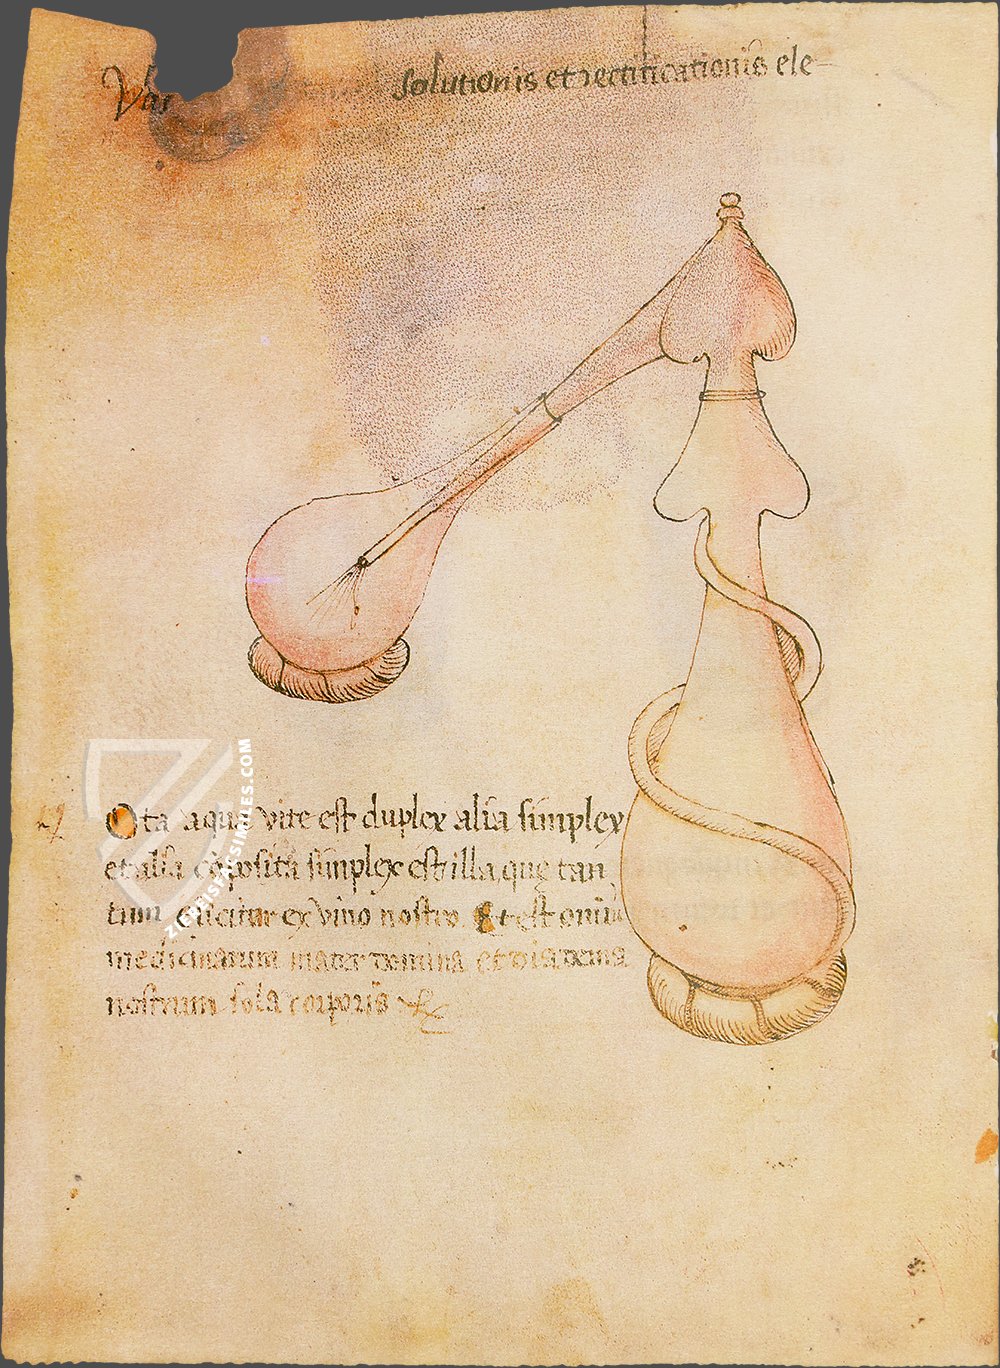 Vas solutionis et rectificationis ele
Ota aqua vite est duplex alia simplex
et alia cōposita simplex est illa que tan
tum elicitur ex vino nostro Et est oniū
medicinarum mater domina et
nostrum corporis
ZIEREIS FACSIMILES.COM